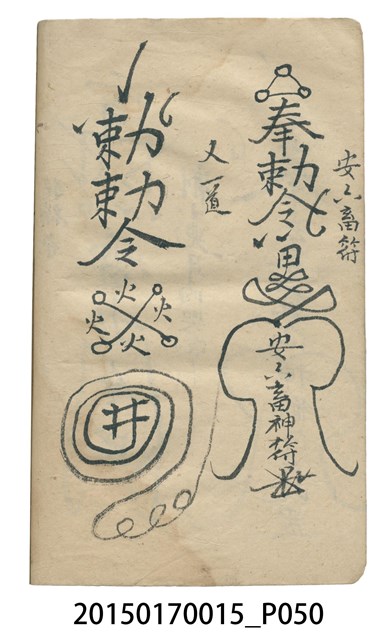 安六畜符
奉勅令
安六畜神符
又一道
勅勅令
火
火 火
火
井
20150170015_P050